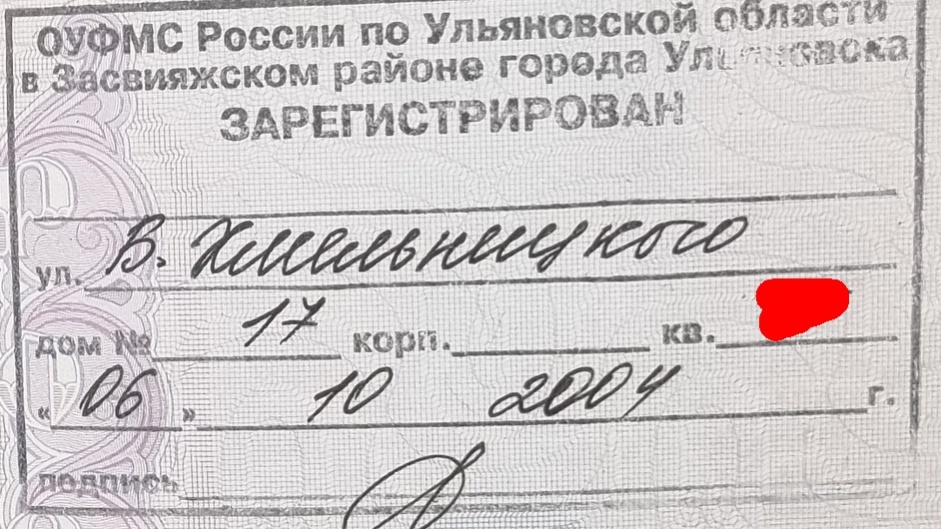 ОУФМС России по Ульяновской области
в Засвияжском районе города Ульяновска
ЗАРЕГИСТРИРОВАН
ул. Б. Хмельницкого
дом № 17 корп. кв.
"06" 10 2004 г.
подпись